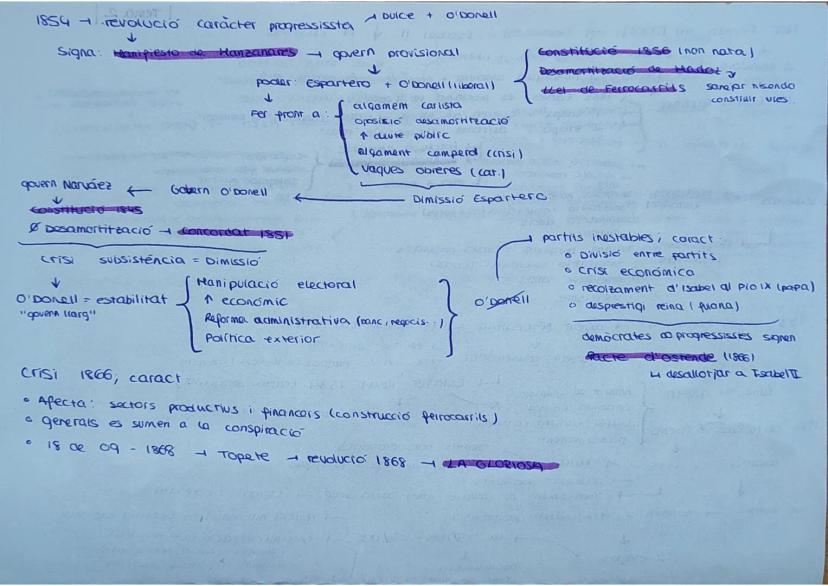 1854 → revolució caràcter progressissta ↗ Dulce + O'Donell
Signa: Manifiesto de Manzanares → govern provisional
poder: Espartero + O'Donell (liberal)
Constitució 1856 (non nata)
Desamortització de Madoz
Llei de Ferrocarrils
construir vies
Fer front a:
alçament carlista
oposició desamortització
↑ deute públic
alçament camperol (crisi)
vaques obreres (cat.)
Dimissió Espartero
govern Narváez ← Govern O'Donell
Constitució 1845
Ø Desamortització → Concordat 1851
crisi subsistència = Dimissió
O'Donell = estabilitat
"govern llarg"
Manipulació electoral
↑ econòmic
Reforma administrativa (banc, negocis...)
Política exterior
O'Donell
partits inestables; caract:
Divisió entre partits
Crisi económica
recolzament d'Isabel al Pio IX (papa)
desprestigi reina (
demòcrates progressistes signen
Pacte d'Ostende (1866)
↳ desallotjar a Isabel II
Crisi 1866; caract:
• Afecta: sectors productius i financers (construcció ferrocarrils)
• generals es sumen a la conspiració
• 18 de 09 - 1868 → Topete → revolució 1868 → LA GLORIOSA